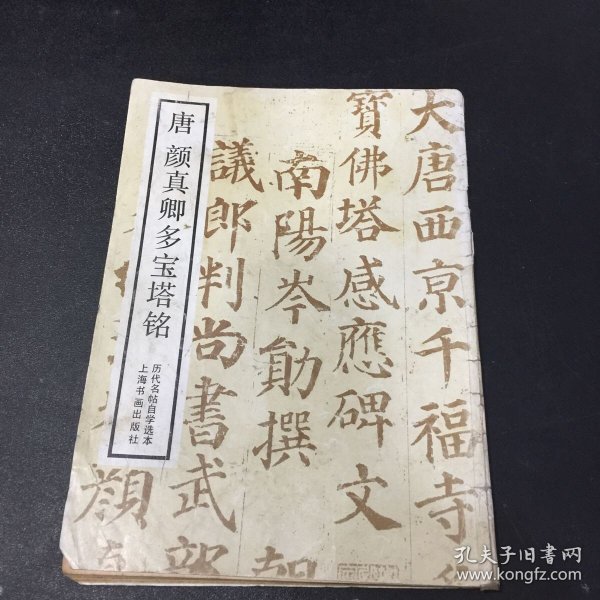 大唐西京千福寺
寶佛塔感應碑文
南陽岑勛撰
議郎判尚書武部
顏
唐 颜真卿多宝塔铭
历代名帖自学选本
上海书画出版社
孔夫子旧书网
www.kongfz.com